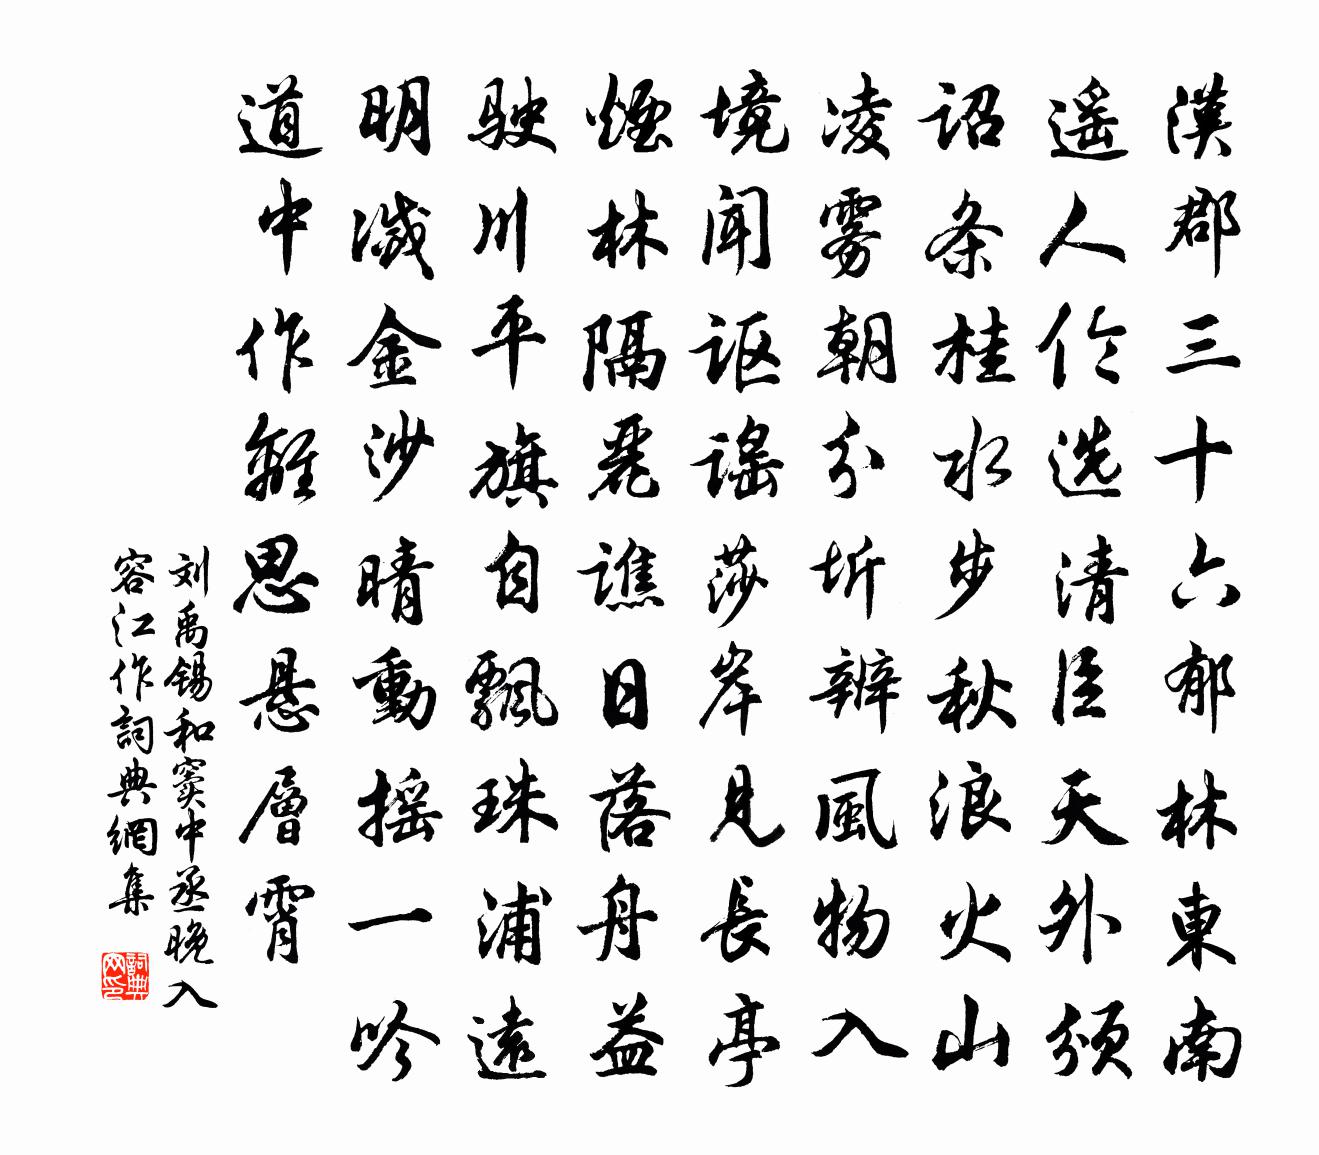 漢郡三十六郁林東南
遥人伦选清臣天外颁
诏条桂水步秋浪火山
凌雾朝分圻辨風物入
境闻讴謠莎岸見長亭
煙林隔麗谯日落舟益
駛川平旗自飄珠浦遠
明滅金沙晴動摇一吟
道中作離思悬層霄
刘禹锡和窦中丞晚入
容江作詞典網集
詞典
网印